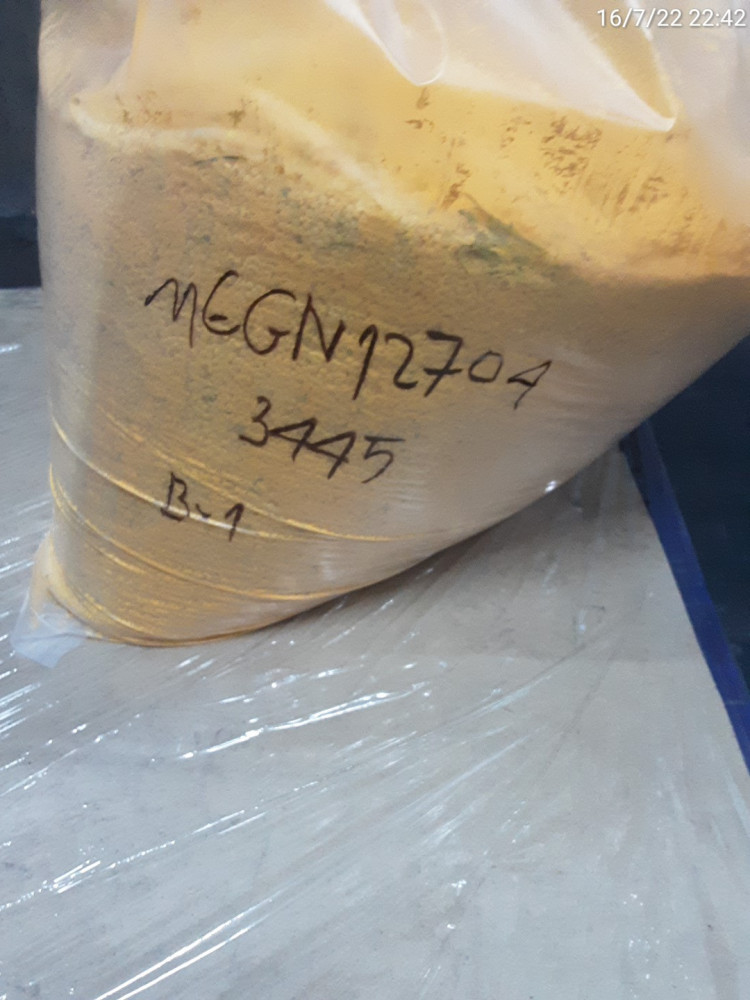 16/7/22 22:42
MEGN12704
3445
B-1